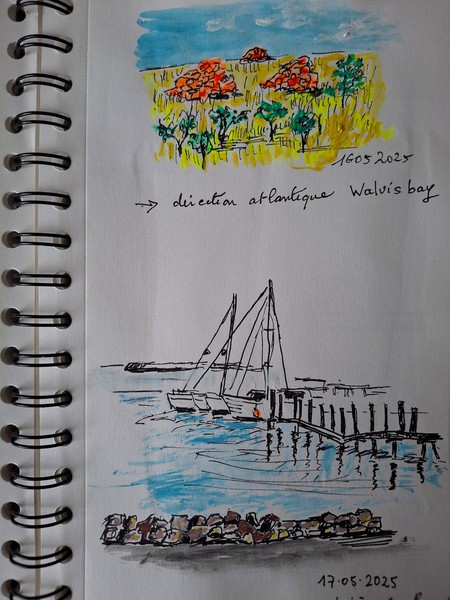 16 05 2025
→ direction atlantique Walvis bay
17.05.2025